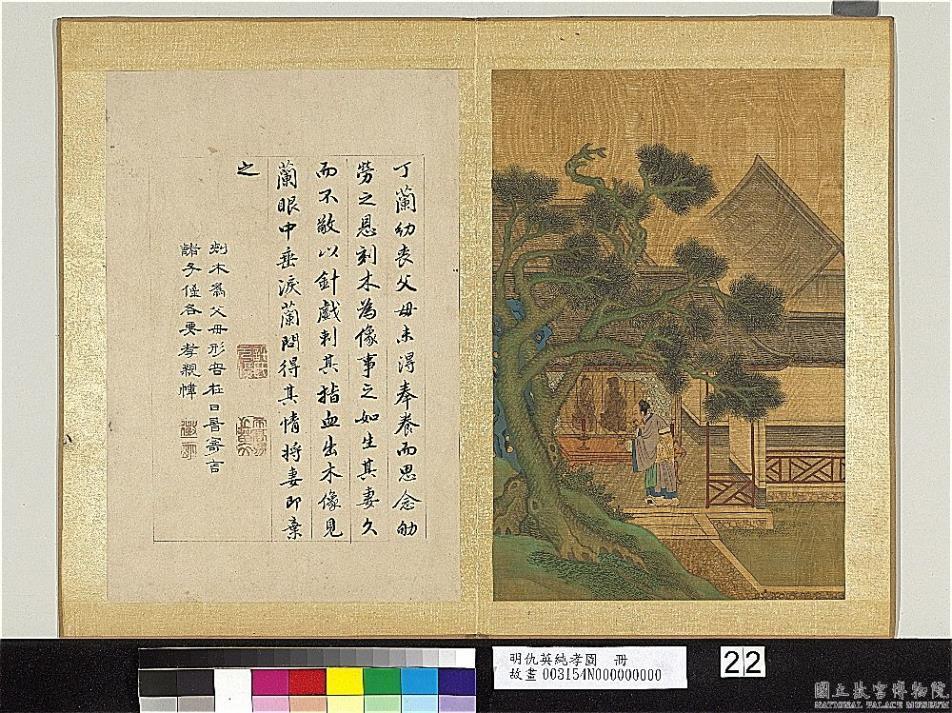 丁蘭幼丧父母未得奉養而思念劬
勞之恩刻木為像事之如生其妻久
而不敬以針戲刺其指血出木像見
蘭眼中垂淚蘭問得其情將妻即棄
之
刻木爲父母形容在日寄言
諸子侄各要孝親幃
明仇英純孝圖 冊
故畫 003154N000000000
22
國立故宮博物院
NATIONAL PALACE MUSEUM